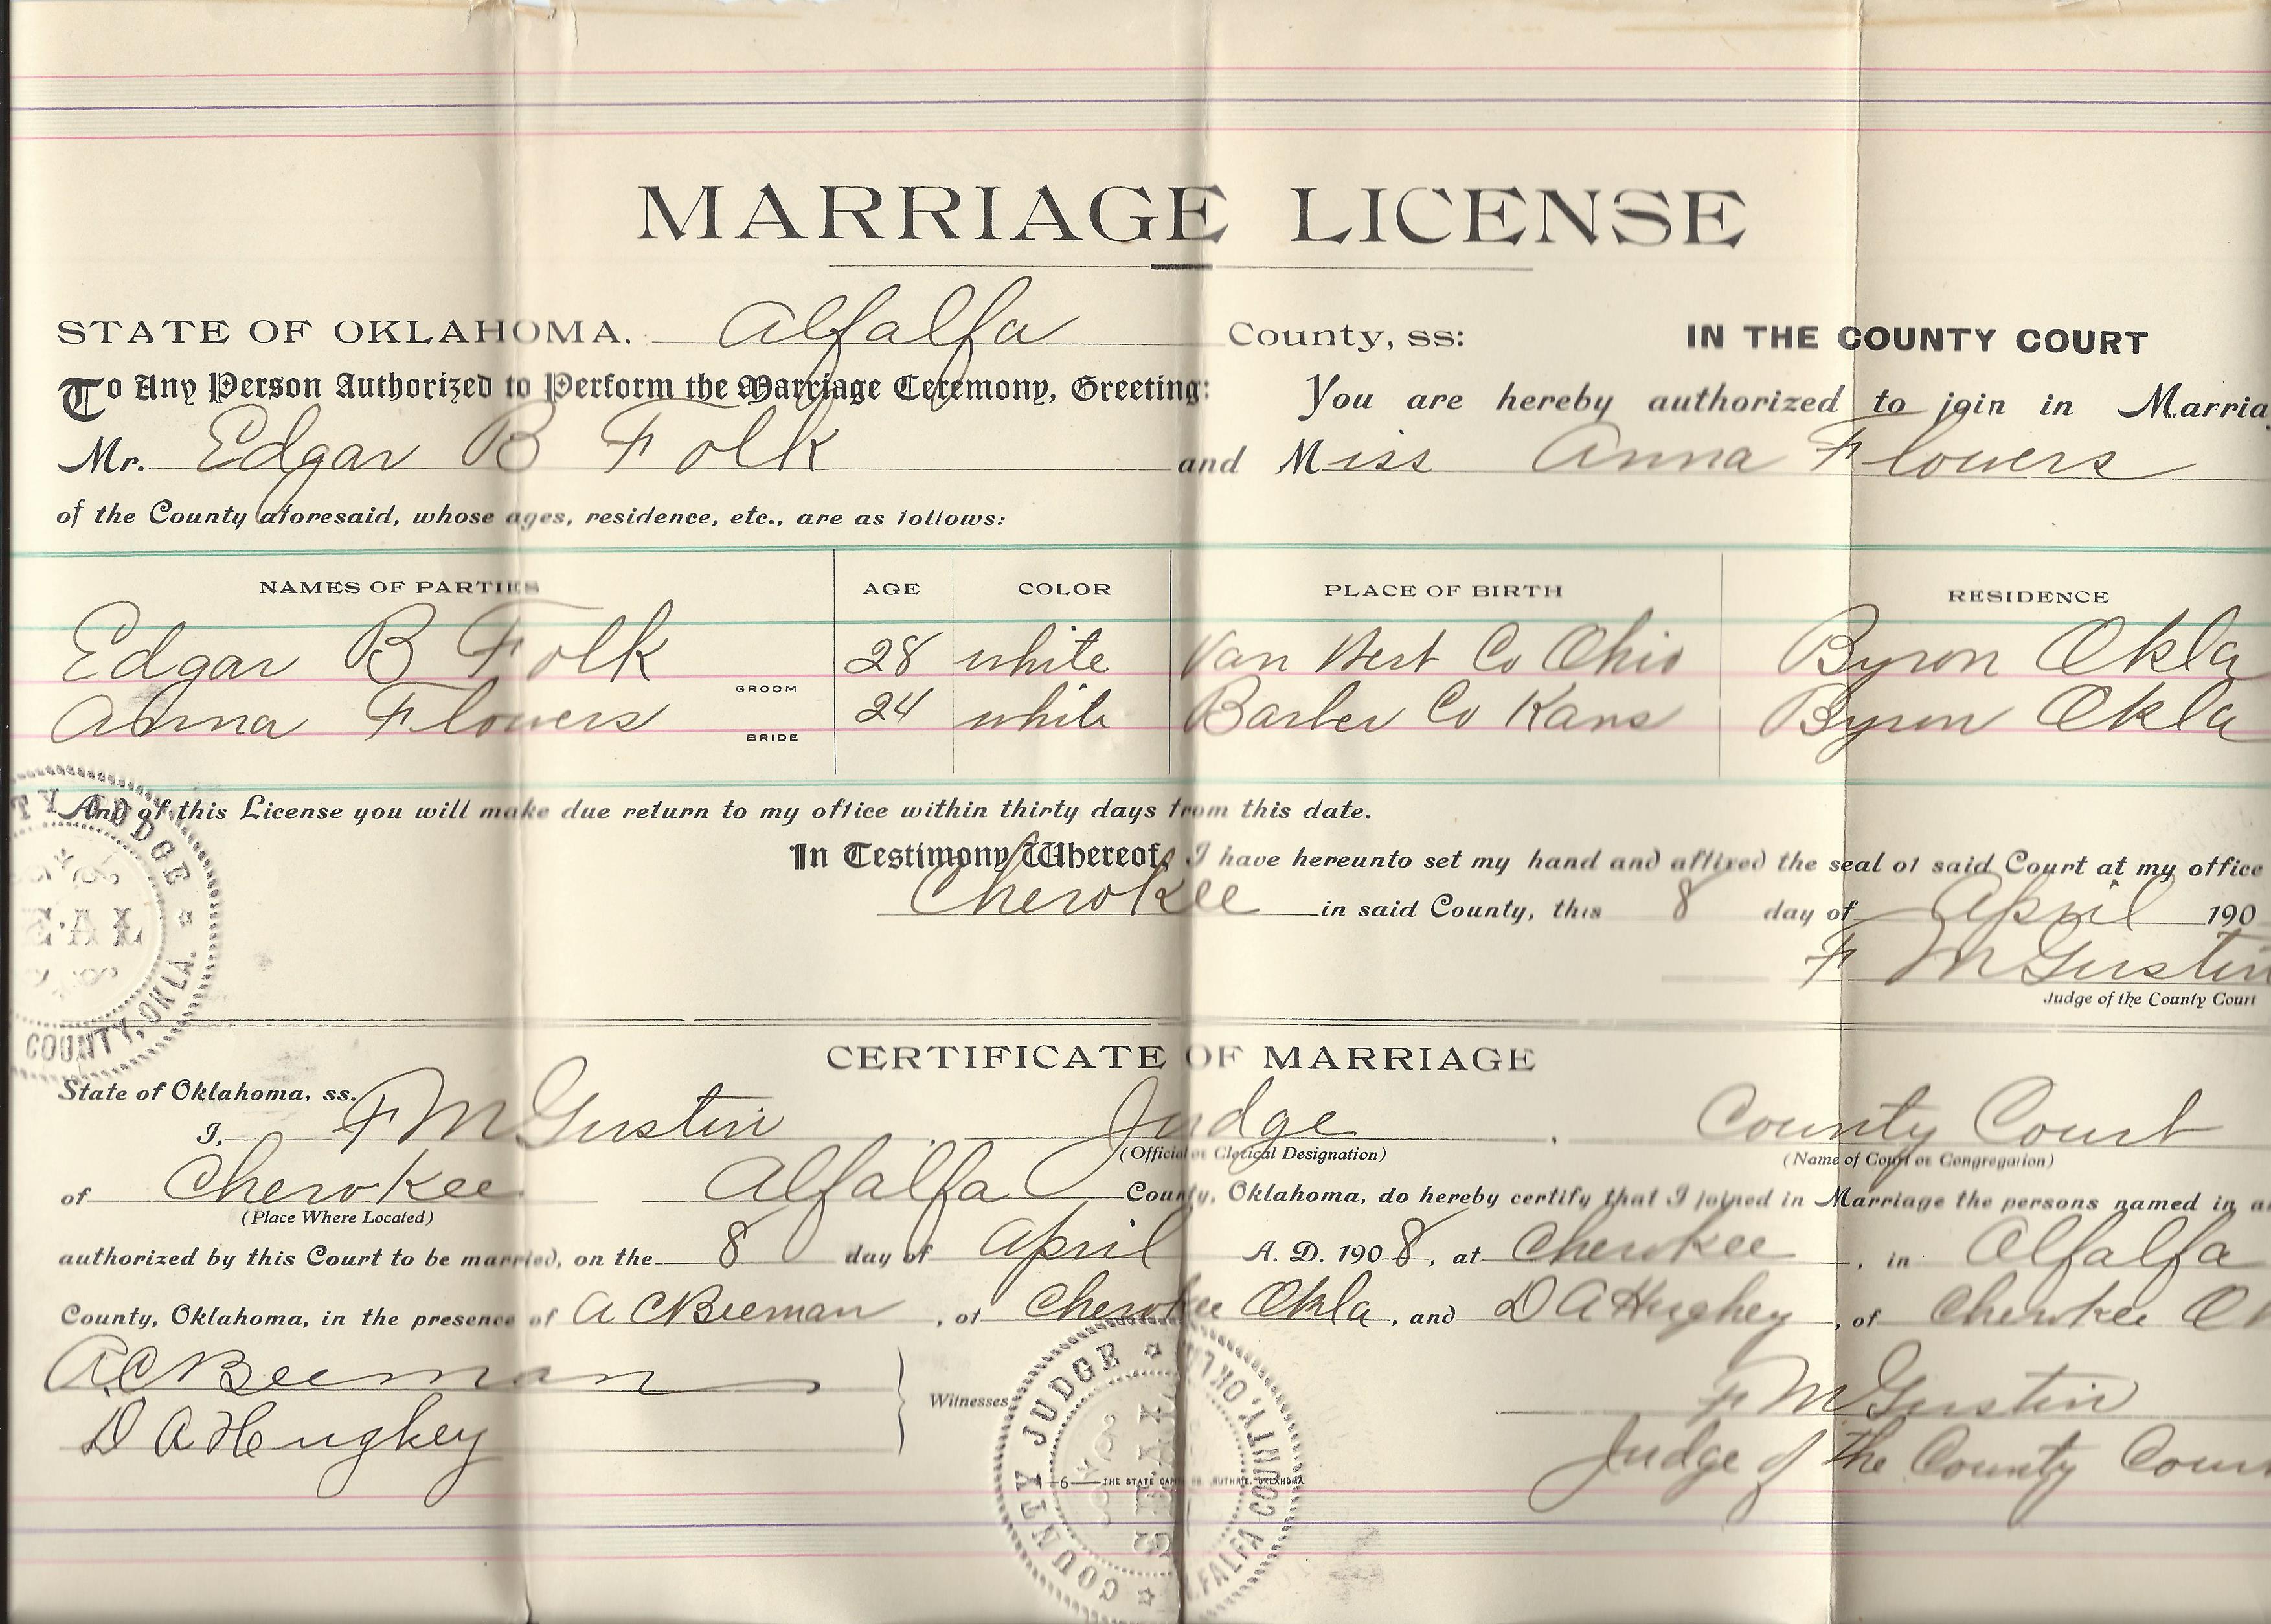 MARRIAGE LICENSE
STATE OF OKLAHOMA, Alfalfa County, ss: IN THE COUNTY COURT
To Any Person Authorized to Perform the Marriage Ceremony, Greeting: You are hereby authorized to join in Marria
Mr. Edgar B Folk and Miss Anna Flowers
of the County aforesaid, whose ages, residence, etc., are as follows:
NAMES OF PARTIES AGE COLOR PLACE OF BIRTH RESIDENCE
Edgar B Folk GROOM 28 white Van Wert Co Ohio Byron Okla
Anna Flowers BRIDE 24 white Barber Co Kans Byron Okla
And of this License you will make due return to my office within thirty days from this date.
In Testimony Whereof, I have hereunto set my hand and affixed the seal of said Court at my office
Cherokee in said County, this 8 day of April 190
F M Gustin
Judge of the County Court
TY JUDGE
EAL
COUNTY, OKLA.
CERTIFICATE OF MARRIAGE
State of Oklahoma, ss.
I, F M Gustin, Judge, County Court
(Official or Clerical Designation) (Name of Court or Congregation)
of Cherokee Alfalfa County, Oklahoma, do hereby certify that I joined in Marriage the persons named in a
(Place Where Located)
authorized by this Court to be married, on the 8 day of April A. D. 1908, at Cherokee, in Alfalfa
County, Oklahoma, in the presence of A C Beeman, of Cherokee Okla, and D A Hughey, of Cherokee Ok
A C Beeman
D A Hughey
Witnesses
F M Gustin
Judge of the County Cour
COUNTY JUDGE
SEAL
ALFALFA COUNTY, OKLA.
6—THE STATE CAP GUTHRIE, OKLAHOMA